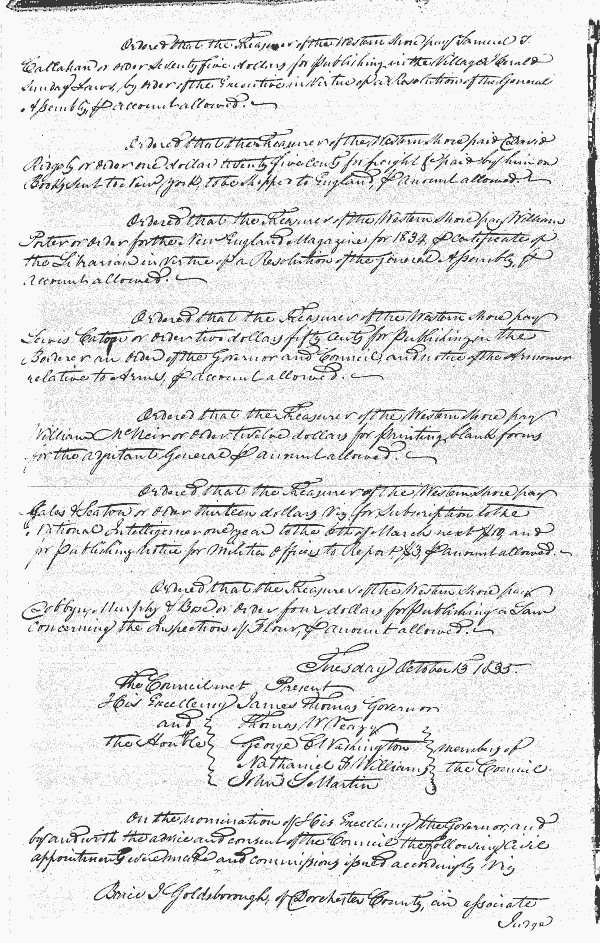 Ordered that the Treasurer of the Western Shore pay Samuel T.
Callahan or order Seventy five dollars for publishing in the Village Herald
Sunday Laws, by order of the Executive in Virtue of a Resolution of the General
Assembly, & account allowed.
Ordered that the Treasurer of the Western Shore paid David
Ridgely or order one dollar twenty five cents for freight paid by him on
Books sent to New York to be shipped to England, & amount allowed.
Ordered that the Treasurer of the Western Shore pay William
Porter or order for the New England Magazine for 1834 & certificate of
the Librarian in Virtue of a Resolution of the General Assembly, &
account allowed.
Ordered that the Treasurer of the Western Shore pay
Lewis Eaton or order two dollars fifty cents for Publishing in the
Borderer an order of the Governor and Council, and notice of the Armourer
relative to Arms, & account allowed.
Ordered that the Treasurer of the Western Shore pay
William McNeir or order twelve dollars for printing blank forms
for the adjutant General & amount allowed.
Ordered that the Treasurer of the Western Shore pay
Gales & Seaton or order thirteen dollars Viz for subscription to the
National Intelligencer one year to the 6th of March next $10, and
for Publishing notice for Militia Officers to Report $3 & amount allowed.
Ordered that the Treasurer of the Western Shore pay
Murphy & Bose or order four dollars for Publishing a Law
concerning the Inspection of Flour, & amount allowed.
Tuesday October 13 1835.
The Council met Present
His Excellency James Thomas Governor
and Thomas W Veazy
the Honble George C Washington members of
Nathaniel F Williams the Council
John S Martin
On the nomination of His Excellency the Governor, and
by and with the advice and consent of the Council the following Civil
appointments were made and commissions issued accordingly Viz
Brice J Goldsborough, of Dorchester County, an associate
Judge